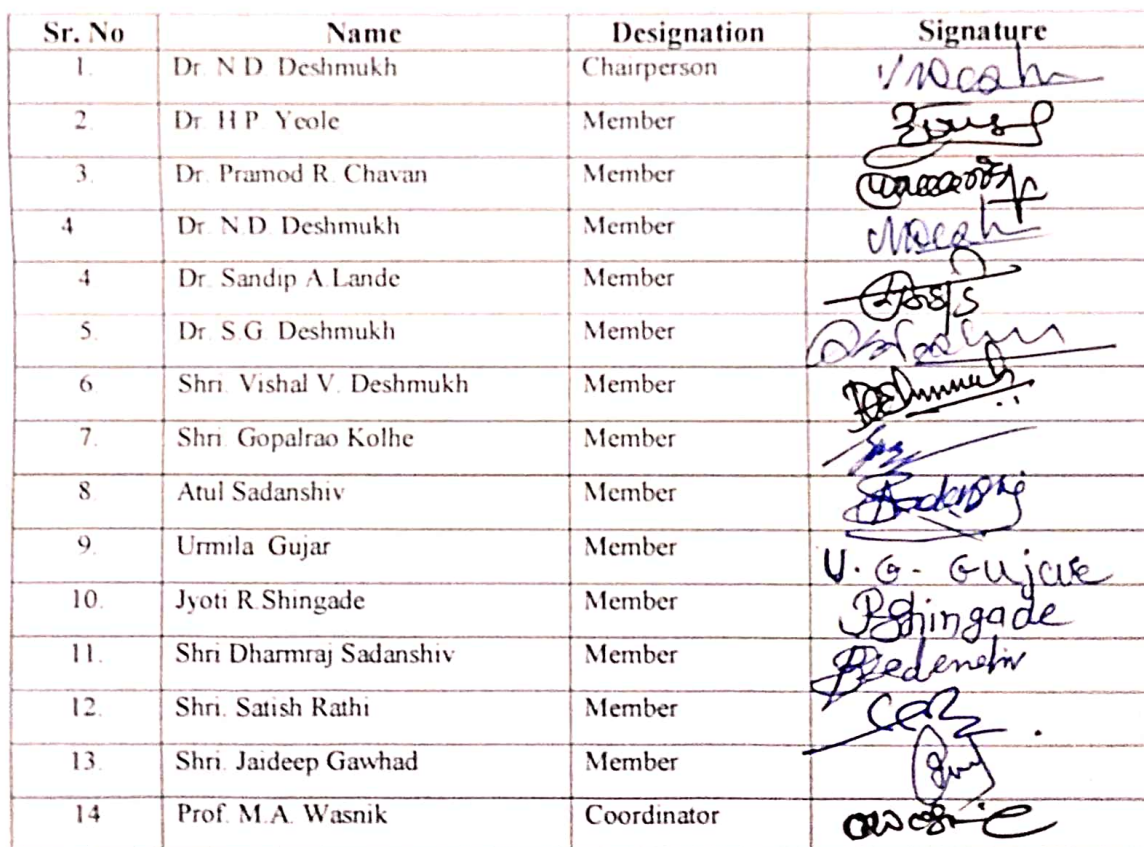 Sr. No Name Designation Signature
1. Dr. N.D. Deshmukh Chairperson
2. Dr. H.P. Yeole Member
3. Dr. Pramod R. Chavan Member
4 Dr. N.D. Deshmukh Member
4 Dr. Sandip A.Lande Member
5. Dr. S.G. Deshmukh Member
6. Shri. Vishal V. Deshmukh Member Deshmukh
7. Shri. Gopalrao Kolhe Member
8 Atul Sadanshiv Member
9. Urmila Gujar Member
10. Jyoti R.Shingade Member RShingade
11. Shri Dharmraj Sadanshiv Member
12. Shri. Satish Rathi Member
13. Shri. Jaideep Gawhad Member
14 Prof. M.A. Wasnik Coordinator